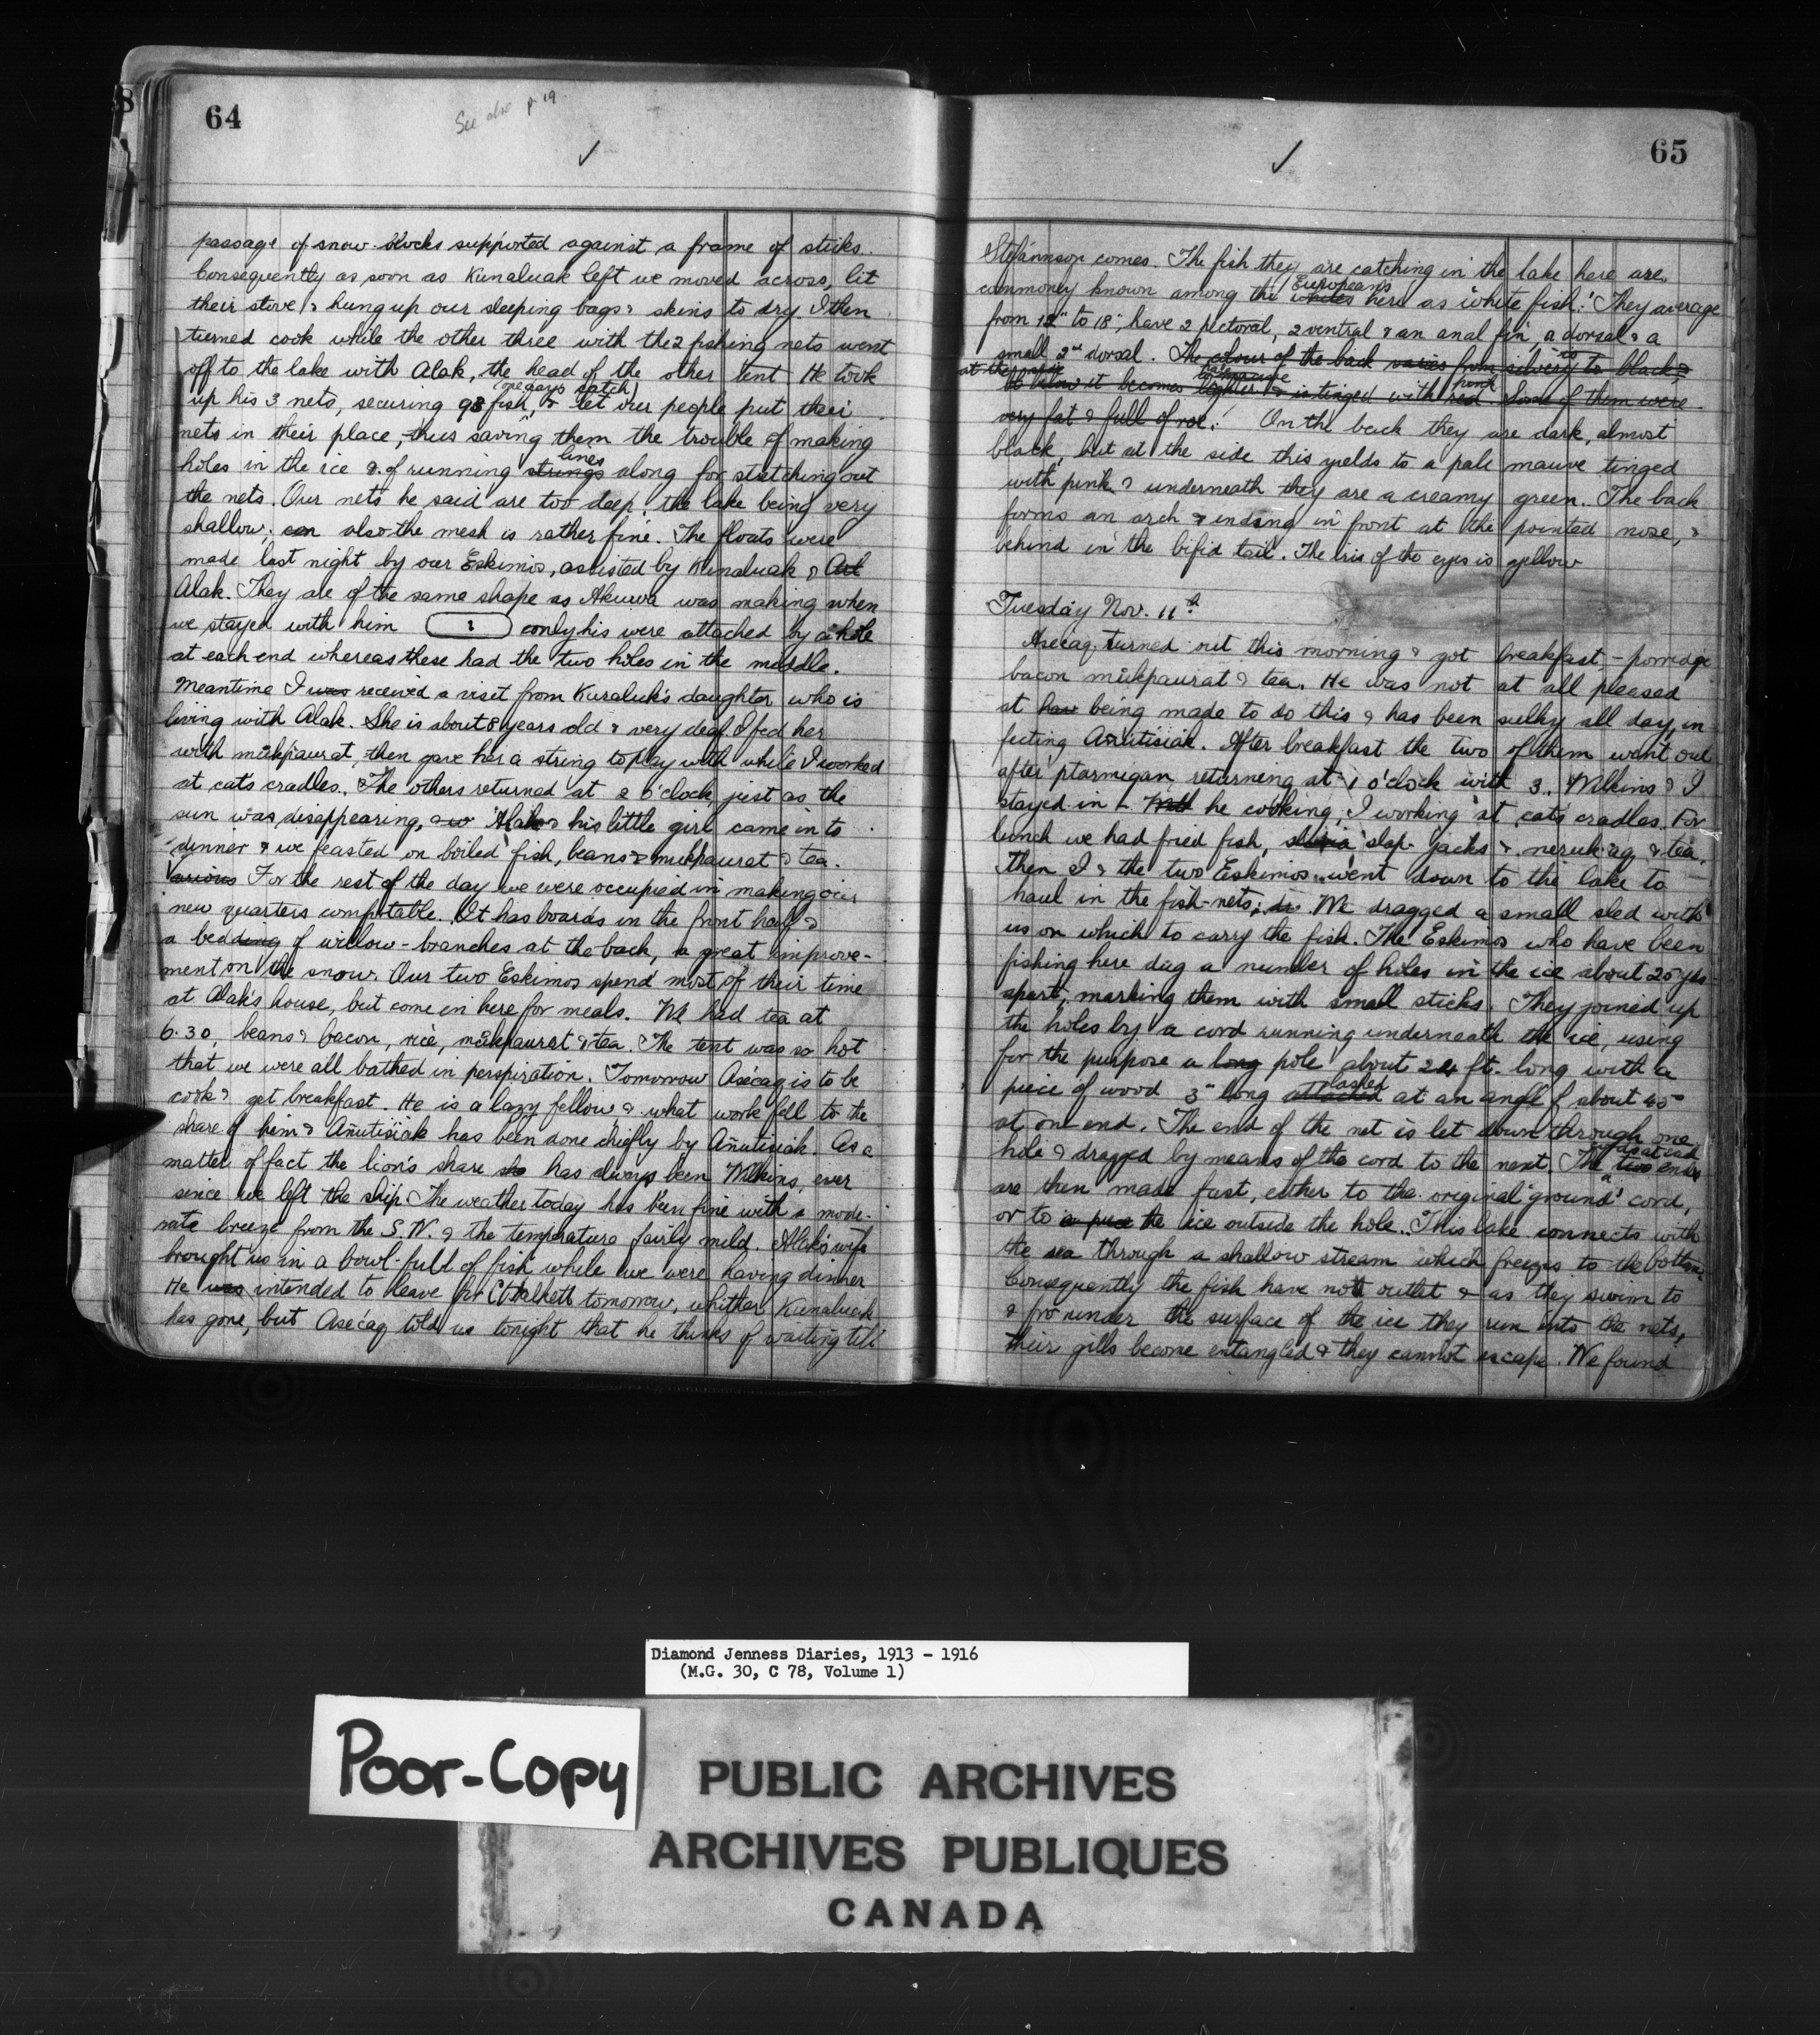 64
See also p 19
passage of snow-blocks supported against a frame of sticks.
Consequently as soon as Kunaluak left we moved across, lit
their stove & hung up our sleeping bags & skins to dry. I then
turned cook while the other three with the 2 fishing nets went
off to the lake with Alak, the head of the other tent. He took
(one day's catch)
up his 3 nets, securing 98 fish, & let our people put their
nets in their place, thus saving them the trouble of making
lines
holes in the ice & of running strings along for stretching out
the nets. Our nets he said are too deep, the lake being very
shallow; can also the mesh is rather fine. The floats were
made last night by our Eskimos, assisted by Kunaluak & Art
Alak. They are of the same shape as Akuwa was making when
we stayed with him only his were attached by a hole
at each end whereas these had the two holes in the middle.
Meantime I was received a visit from Kuraluk's daughter who is
living with Alak. She is about 8 years old & very deaf. I fed her
with mukpaurat, then gave her a string to play with while I worked
at cat's cradles. The others returned at 2 o'clock, just as the
sun was disappearing, Alak & his little girl came in to
dinner & we feasted on boiled fish, beans & mukpaurat & tea.
Various For the rest of the day we were occupied in making our
new quarters comfortable. It has boards in the front half &
a bedding of willow-branches at the back, a great improve-
ment on the snow. Our two Eskimos spend most of their time
at Alak's house, but come in here for meals. We had tea at
6.30, beans & bacon, rice, mukpaurat & tea. The tent was so hot
that we were all bathed in perspiration. Tomorrow Asecaq is to be
cook & get breakfast. He is a lazy fellow & what work fell to the
share of him & Añutisiak has been done chiefly by Añutisiak. As a
matter of fact the lion's share sho has always been Wilkins, ever
since we left the ship. The weather today has been fine with a mode-
rate breeze from the S.W. & the temperature fairly mild. Alak's wife
brought us in a bowl-full of fish while we were having dinner
He was intended to leave for C. Halkett tomorrow, whither Kunaluak
has gone, but Asecaq told us tonight that he thinks of waiting till
65
Stefánnson comes. The fish they are catching in the lake here are
Europeans
commonly known among the whites here as "white fish." They average
from 12" to 18", have 2 pectoral, 2 ventral & an anal fin, a dorsal & a
small 2nd dorsal. The colour of the back varies from silvery to black &
at the side pale mauve pink
below it becomes lighter & is tinged with red. Some of them were
very fat & full of roe. On the back they are dark, almost
black, but at the side this yields to a pale mauve tinged
with pink & underneath they are a creamy green. The back
forms an arch & ending in front at the pointed nose, &
behind in the bifid tail. The iris of the eyes is yellow
Tuesday Nov. 11th
Asecaq turned out this morning & got breakfast – porridge
bacon mukpaurat & tea. He was not at all pleased
at hav being made to do this & has been sulky all day, in-
fecting Añutisiak. After breakfast the two of them went out
after ptarmigan returning at 1 o'clock with 3. Wilkins & I
stayed in – he cooking, I working at cat's cradles. For
lunch we had fried fish, slap-jacks & neruk·aq & tea.
Then I & the two Eskimos went down to the lake to
haul in the fish-nets; We dragged a small sled with
us on which to carry the fish. The Eskimos who have been
fishing here dug a number of holes in the ice about 20 yds
apart, marking them with small sticks. They joined up
the holes by a cord running underneath the ice, using
for the purpose a long pole about 24 ft. long with a
lashed
piece of wood 3" long attached at an angle of about 45°
at one end. The end of the net is let down through one
hole & dragged by means of the cord to the next. The two ends
are then made fast, either to the original 'ground' cord,
or to a piece the ice outside the hole. This lake connects with
the sea through a shallow stream which freezes to the bottom.
Consequently the fish have not outlet & as they swim to
& fro under the surface of the ice they run into the nets,
their gills become entangled & they cannot escape. We found
Diamond Jenness Diaries, 1913 - 1916
(M.G. 30, C 78, Volume 1)
Poor-Copy
PUBLIC ARCHIVES
ARCHIVES PUBLIQUES
CANADA